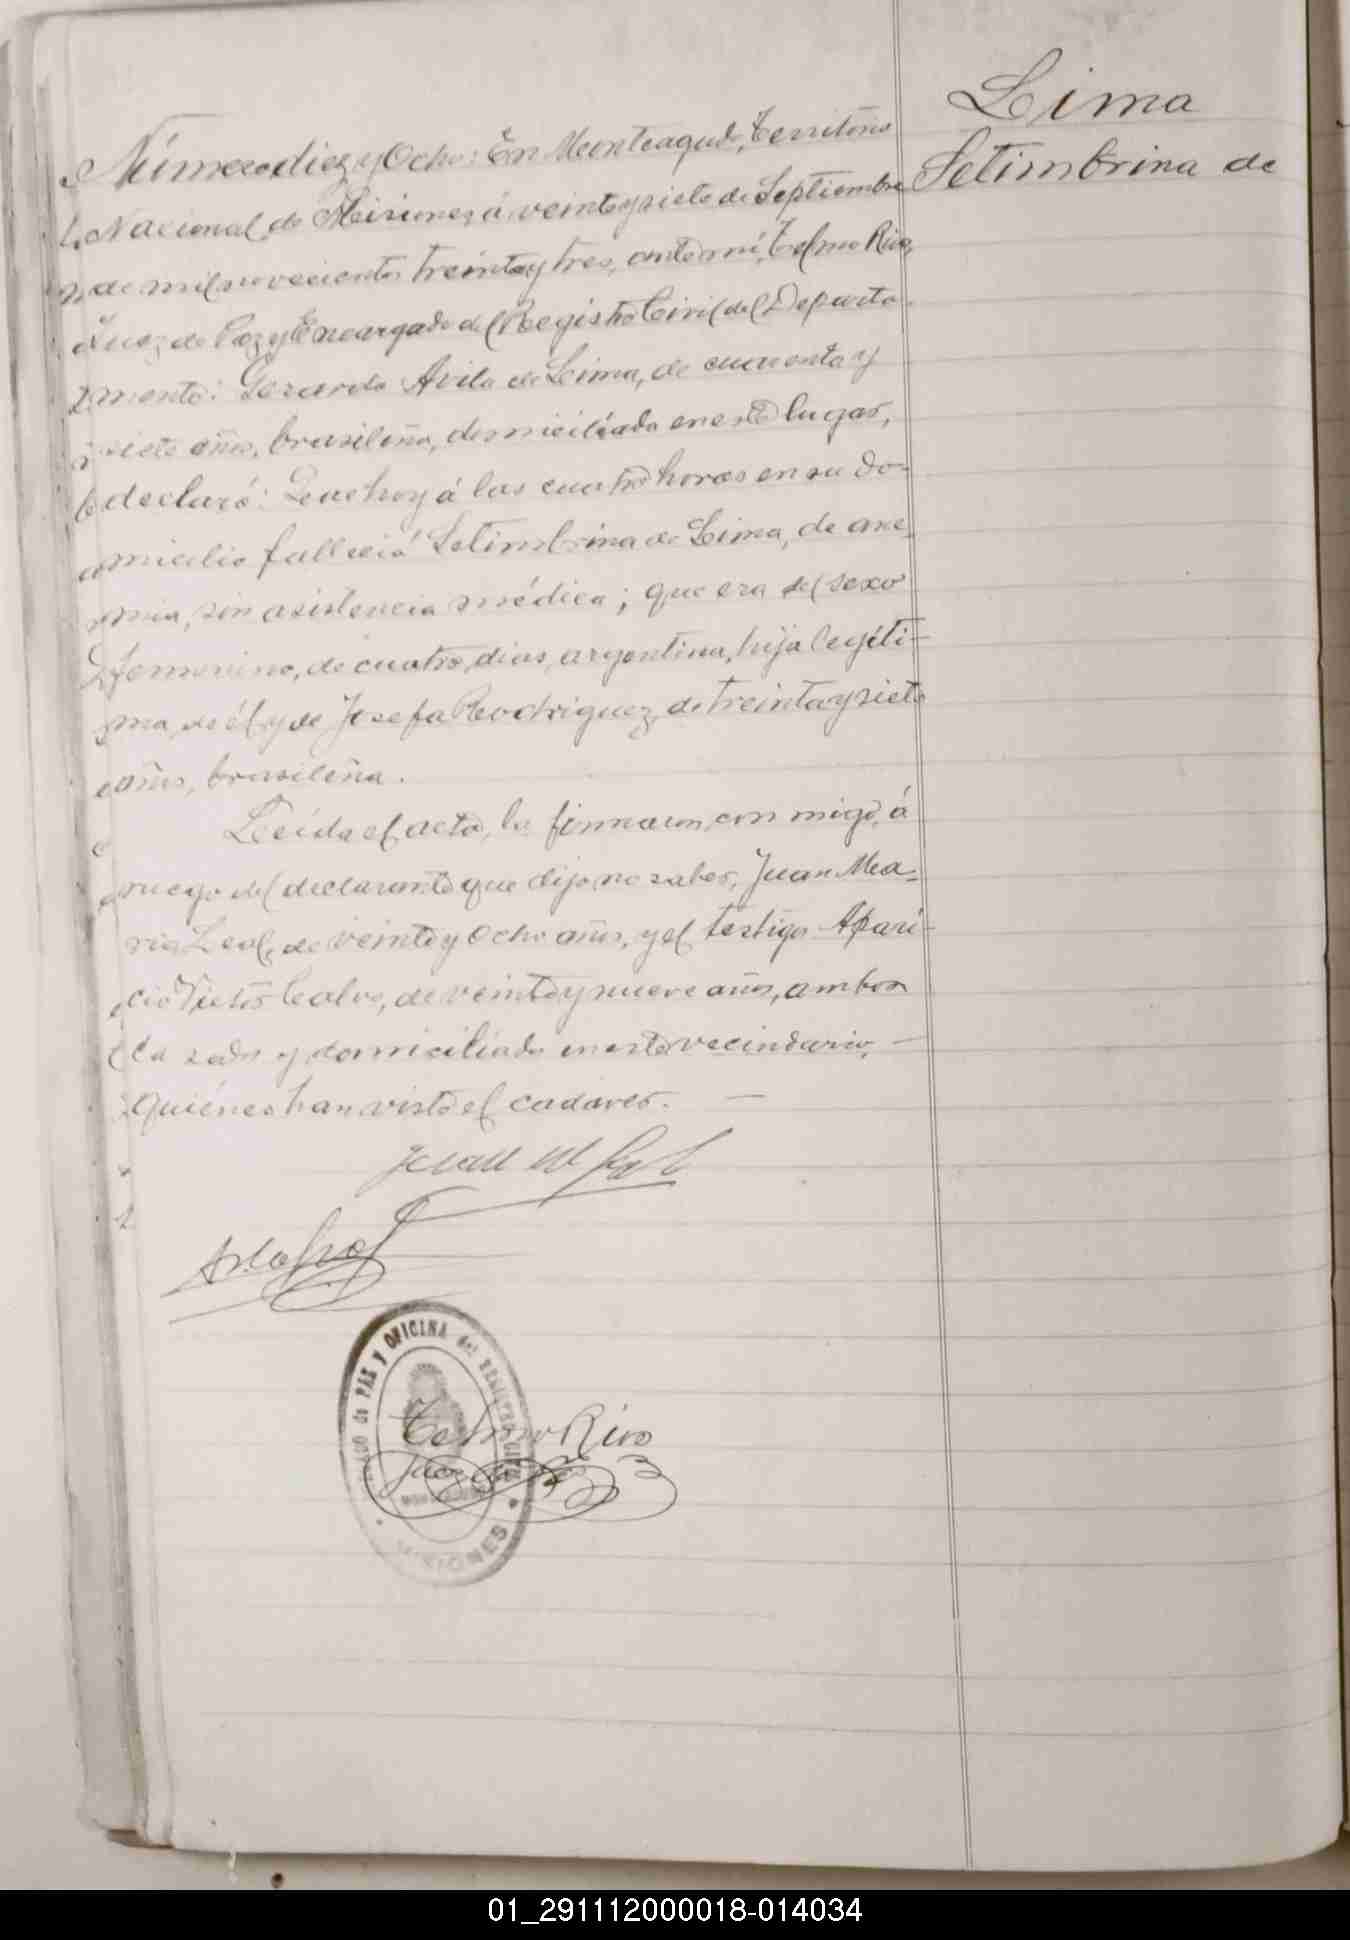 Lima
Setimbrina de
Número diez y Ocho: En Monteagudo, Territorio
Nacional de Misiones, á veinte y siete de Septiembre
de mil novecientos treinta y tres, ante mí, Telmo Rivo,
Juez de Paz y Encargado del Registro Civil del Departa-
mento: Gerardo Avila de Lima, de cuarenta y
siete años, brasileño, domiciliado en este lugar,
declaró: Que hoy á las cuatro horas en su do-
micilio falleció Setimbrina de Lima, de ane-
mia, sin asistencia médica; que era del sexo
femenino, de cuatro dias, argentina, hija legíti-
ma, de él y de Josefa Rodriguez, de treinta y siete
años, brasileña.
Leída el acta, la firmaron con migo, á
ruego del declarante que dijo no saber, Juan Ma-
ria Leal, de veinte y ocho años, y el testigo Apari-
cio Calvo, de veinte y nueve años, ambos
casados y domiciliados en este vecindario,
quiénes han visto el cadaver. —
Juan M Leal
Telmo Rivo
Juez de Paz
JUZGADO de PAZ y OFICINA del REGISTRO CIVIL
MISIONES
01_291112000018-014034